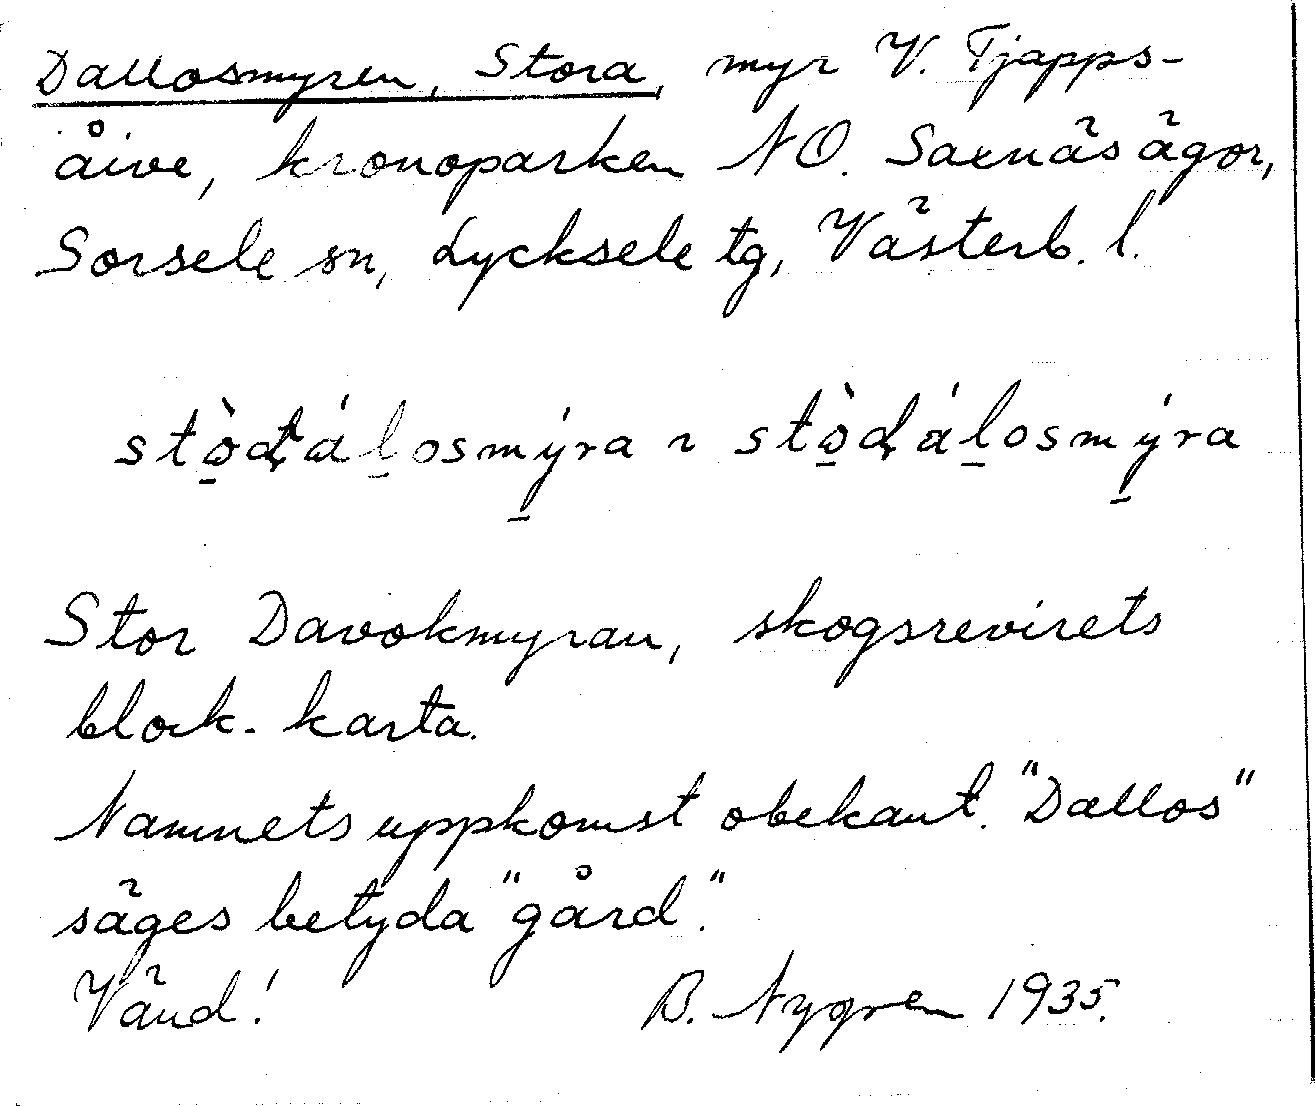 Dallosmyren, Stora, myr V. Tjapps-
åive, kronoparken NO. Saxnäs ägor,
Sorsele sn, Lycksele tg, Västerb. l.
stò̠ḍá l̠osmý̠ra ~ stò̠ḍá l̠osmý̠ra
Stor Davokmyran, skogsrevirets
block-karta.
Namnets uppkomst obekant. "Dallos"
säges betyda "gård".
Vänd! B. Nygren 1935.